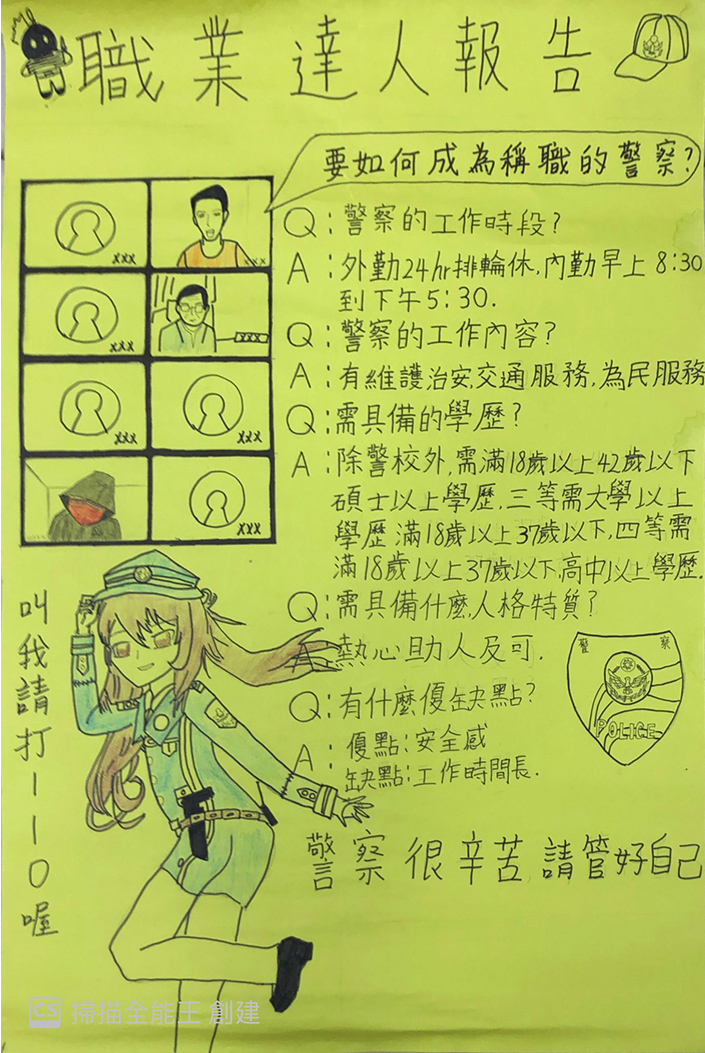 職業達人報告
要如何成為稱職的警察?
Q:警察的工作時段?
A:外勤24hr排輪休,內勤早上8:30
到下午5:30.
Q:警察的工作內容?
A:有維護治安,交通服務,為民服務
Q:需具備的學歷?
A:除警校外,需滿18歲以上42歲以下
碩士以上學歷,三等需大學以上
學歷滿18歲以上37歲以下,四等需
滿18歲以上37歲以下,高中以上學歷.
Q:需具備什麼,人格特質?
A:熱心助人及可.
Q:有什麼優缺點?
A:優點:安全感
缺點:工作時間長.
警察很辛苦請管好自己
xxx
xxx
xxx
xxx
xxx
xxx
xxx
xxx
叫我請打110喔
警察
POLICE
CS 掃描全能王 創建